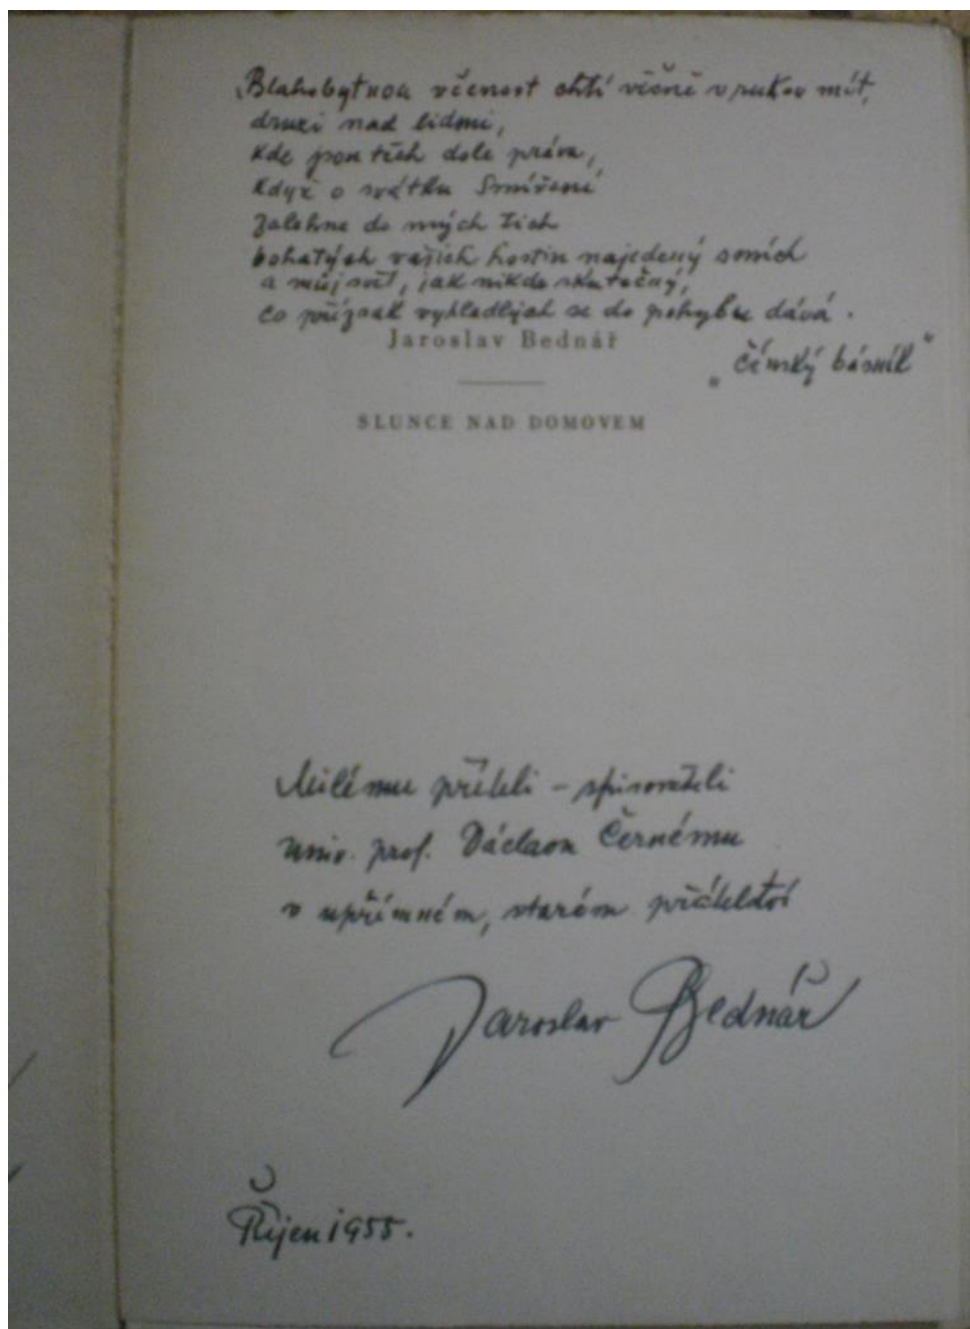 „Blahobytnou věčnost chtí věčně v rukou mít,
druzi nad lidmi,
kde jsou těch dole práva,
když o svátku Smíření
zalehne do mých
bohatých vašich hostin najedený smích
a můj svět, jak nikdo skutečný,
co přízrak vyhladlých se do pohybu dává.
Jaroslav Bednář
„Čínský básník“
SLUNCE NAD DOMOVEM
Milému příteli – spisovateli
univ. prof. Václavu Černému
v upřímném, starém přátelství
Jaroslav Bednář
Říjen 1955.